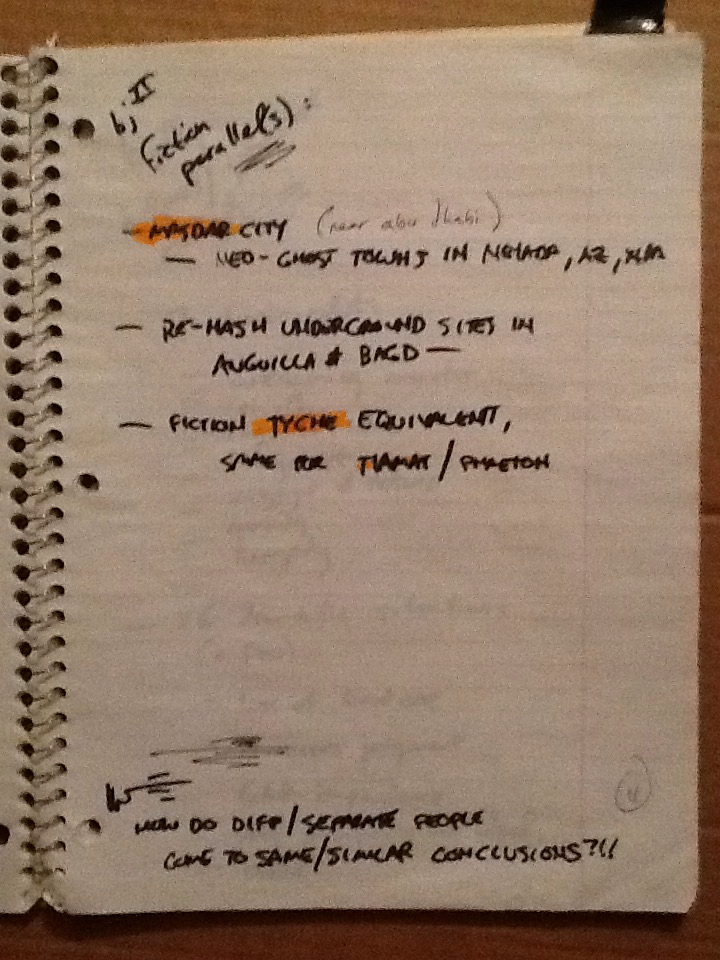 b) II
Fiction
parallel(s):
— MASDAR CITY (near abu dhabi)
— NEO-GHOST TOWNS IN NEVADA, AZ, NM
— RE-HASH UNDERGROUND SITES IN
ANGUILLA & BAGD—
— FICTION TYCHE EQUIVALENT,
SAME FOR TIAMAT / PHAETON
HOW DO DIFF/SEPARATE PEOPLE
COME TO SAME/SIMILAR CONCLUSIONS?!!
4